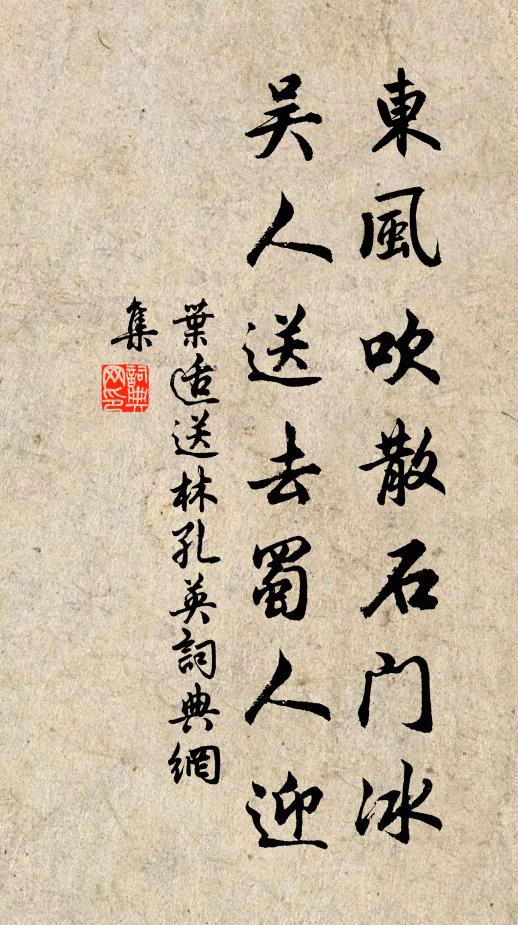 東風吹散石门冰
吴人送去蜀人迎
葉适送林孔英詞典網
集
詞典网印